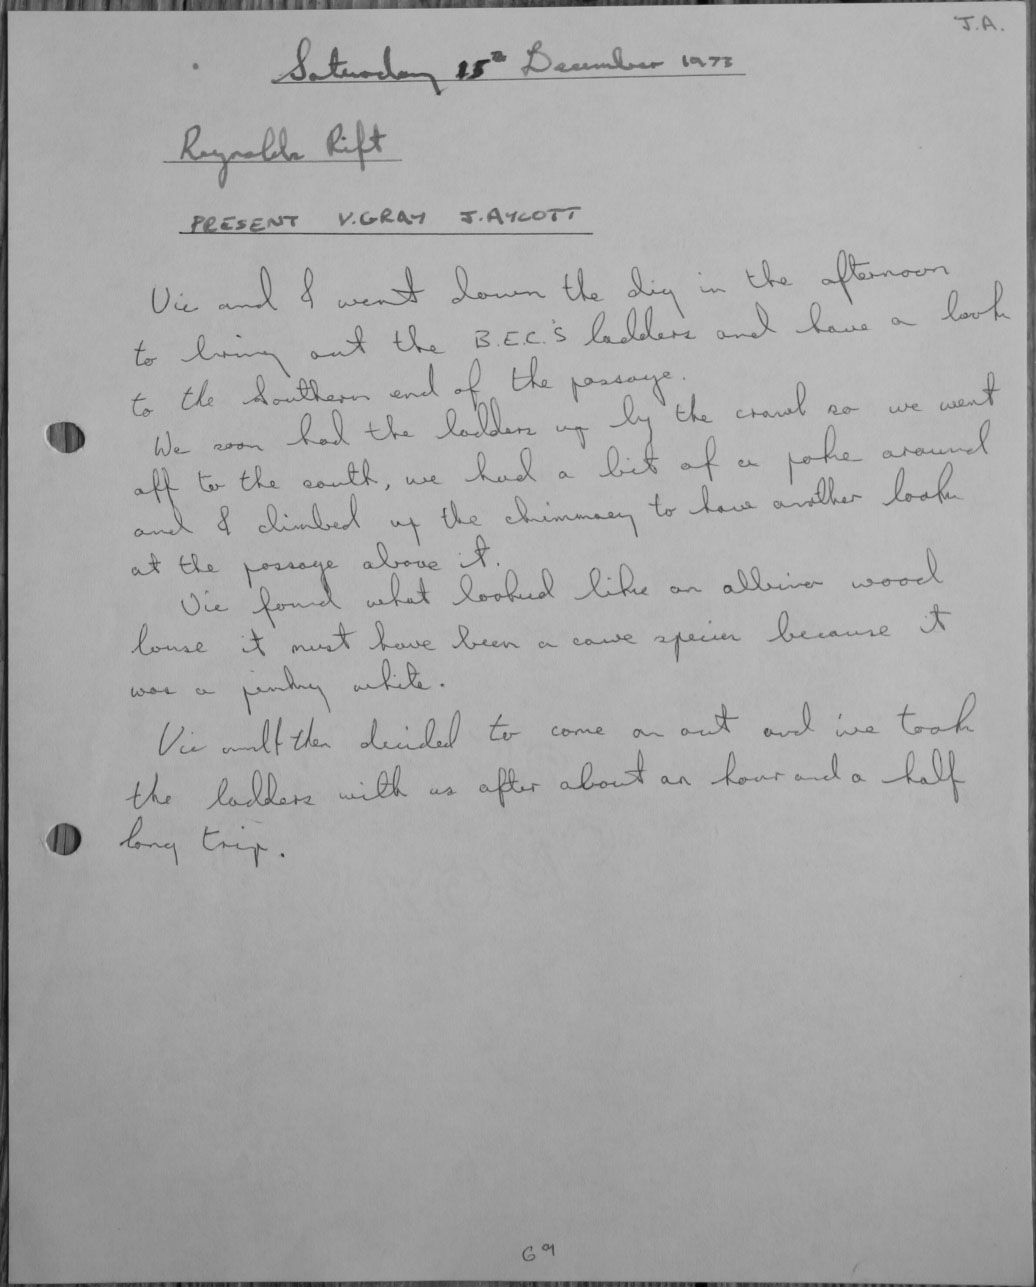 J.A.
Saturday 15th December 1973
Reynolds Rift
PRESENT V.GRAY J.AYCOTT
Vic and I went down the dig in the afternoon
to bring out the B.E.C.'s ladders and have a look
to the Southern end of the passage.
We soon had the ladders up by the crawl so we went
off to the south, we had a bit of a poke around
and I climbed up the chimmney to have another look
at the passage above it.
Vic found what looked like an albino wood
louse it must have been a cave specie because it
was a pinky white.
Vic and I then decided to come on out and we took
the ladders with us after about an hour and a half
long trip.
69